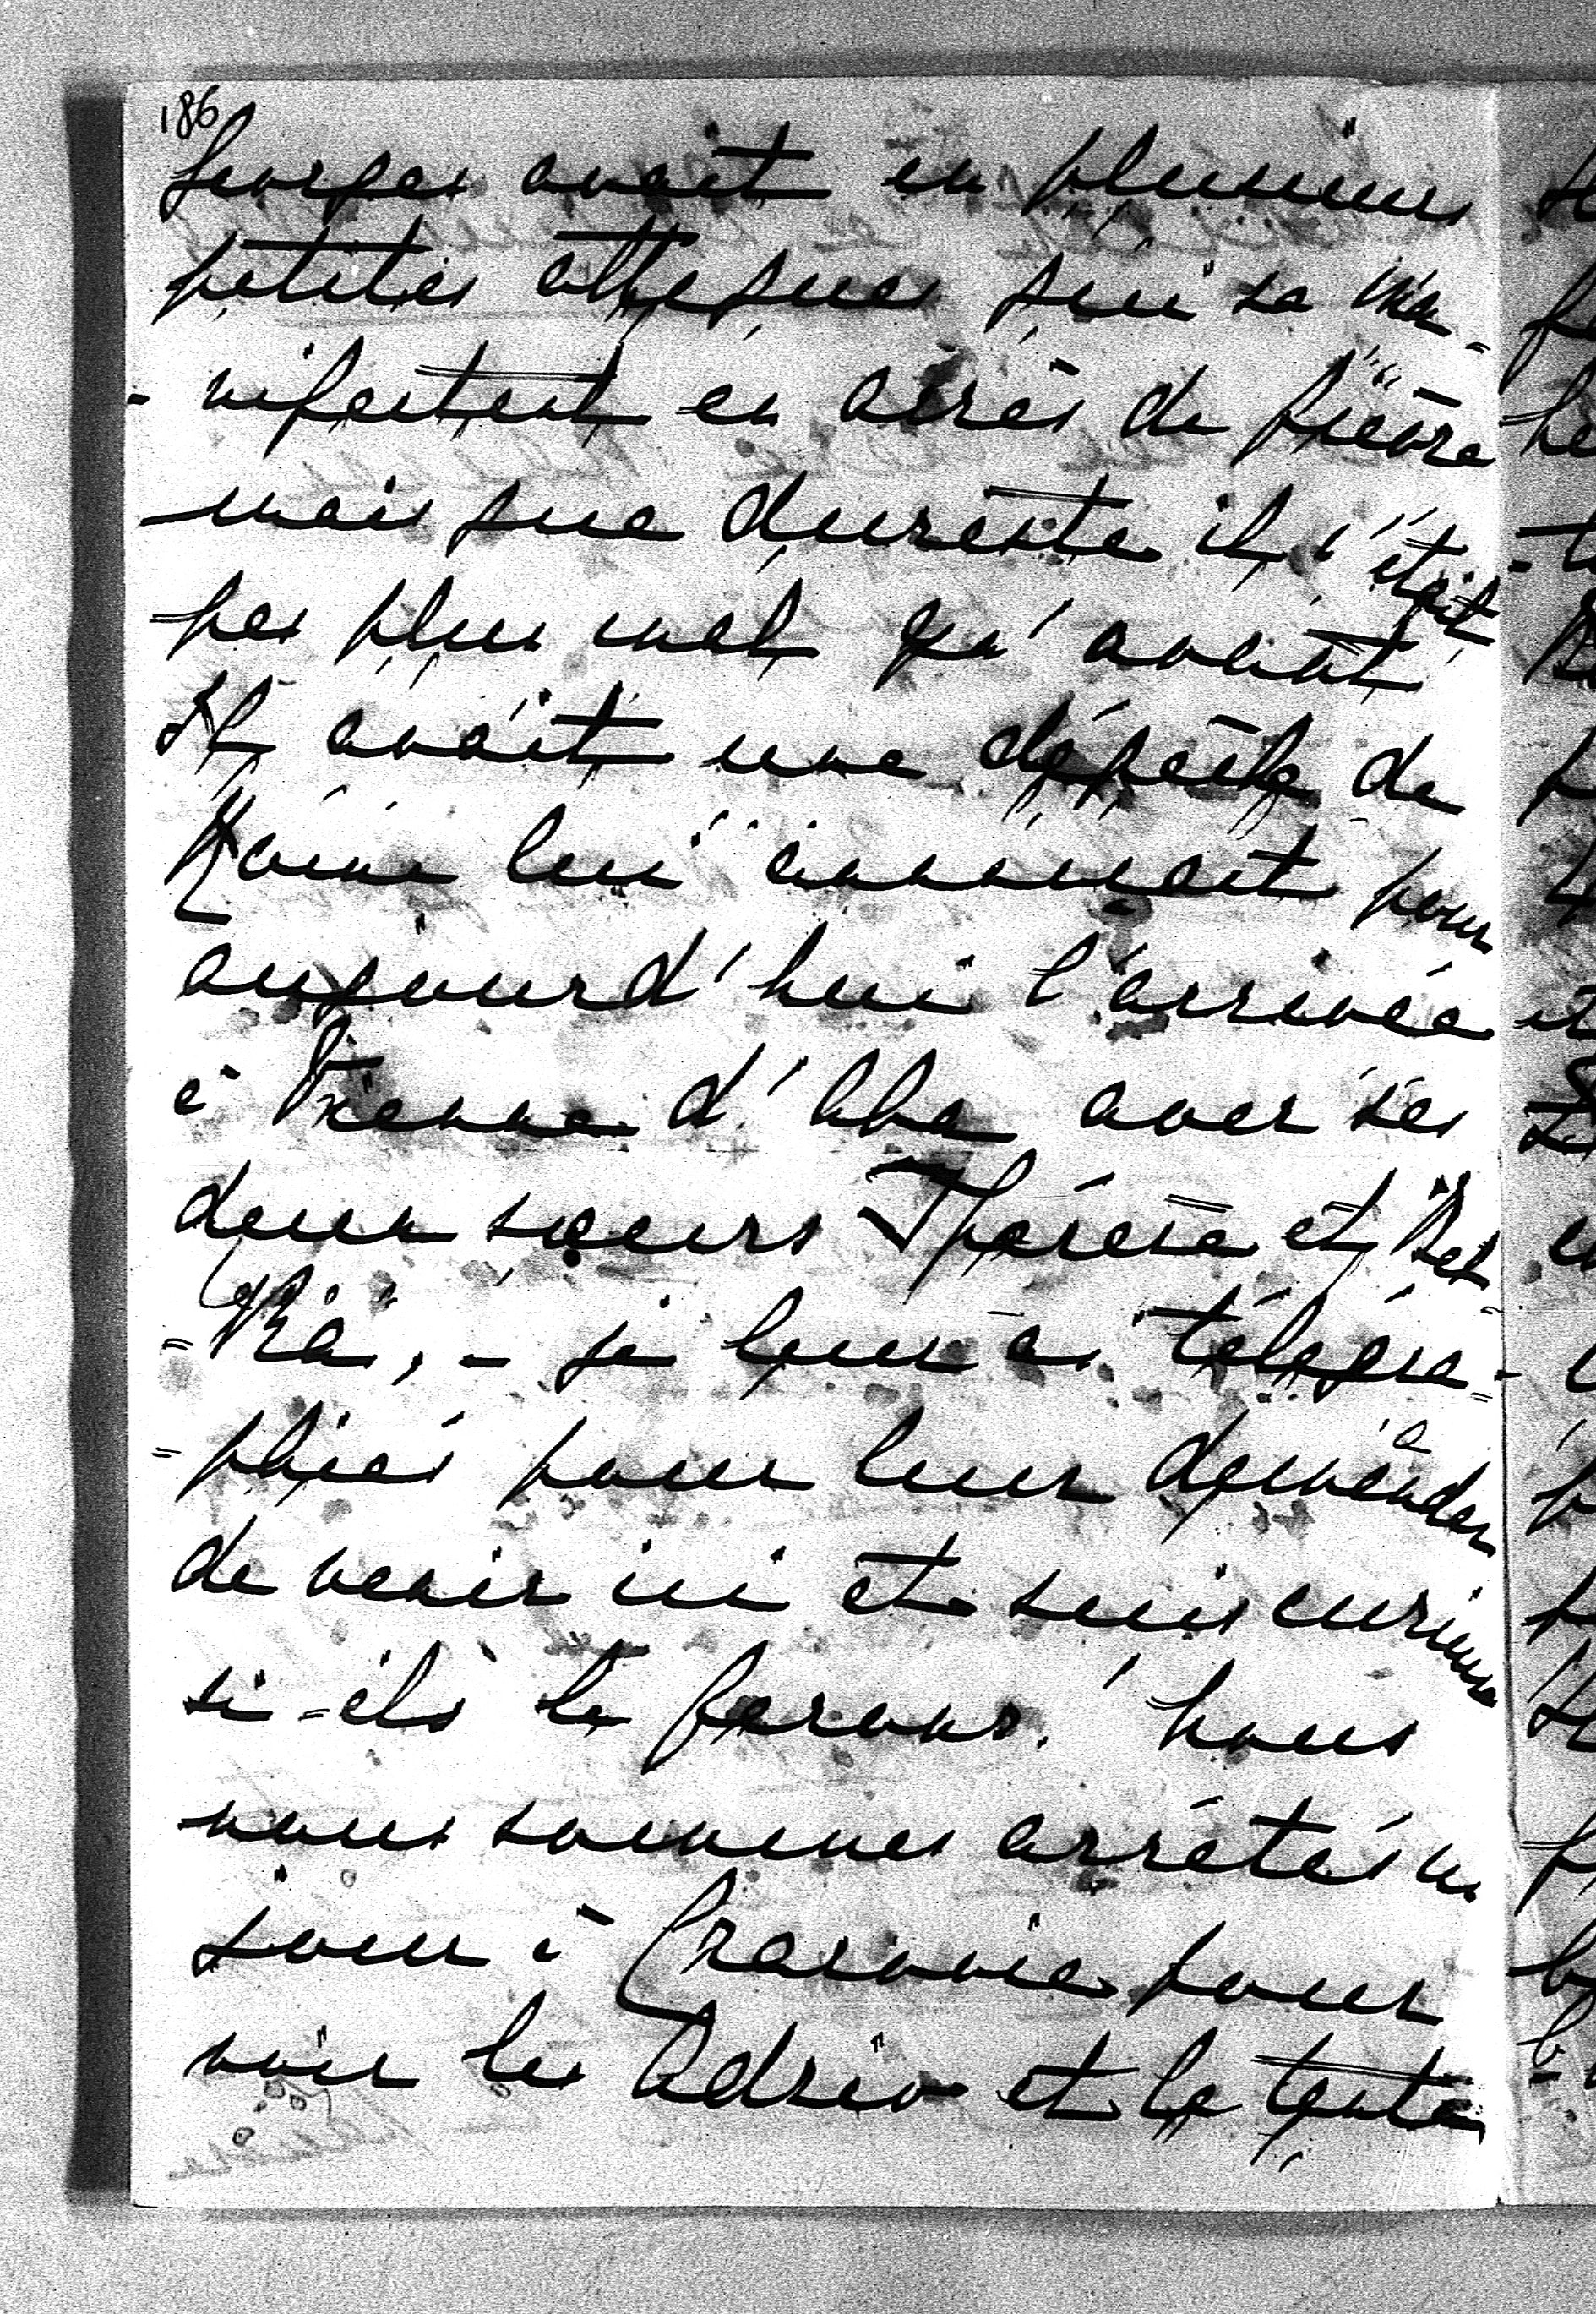 186
Georges avait eu plusieurs
petites attaques qui se ma-
-nifestent en accès de fièvre
mais que dureste il n'était
pas plus mal qu'avant
Il avait une dépèche de
Rome lui annonçait pour
aujourd'hui l'arrivée
à Vienne d'Aba avec ses
deux soeurs Thérèse et
je leur ai télégra-
-phiés pour leur demander
de venir ici et suis curieuse
si-ils le ferons. nous
nous sommes arrêtés un
jour à Cracovie pour
voir les Adzio et la tante